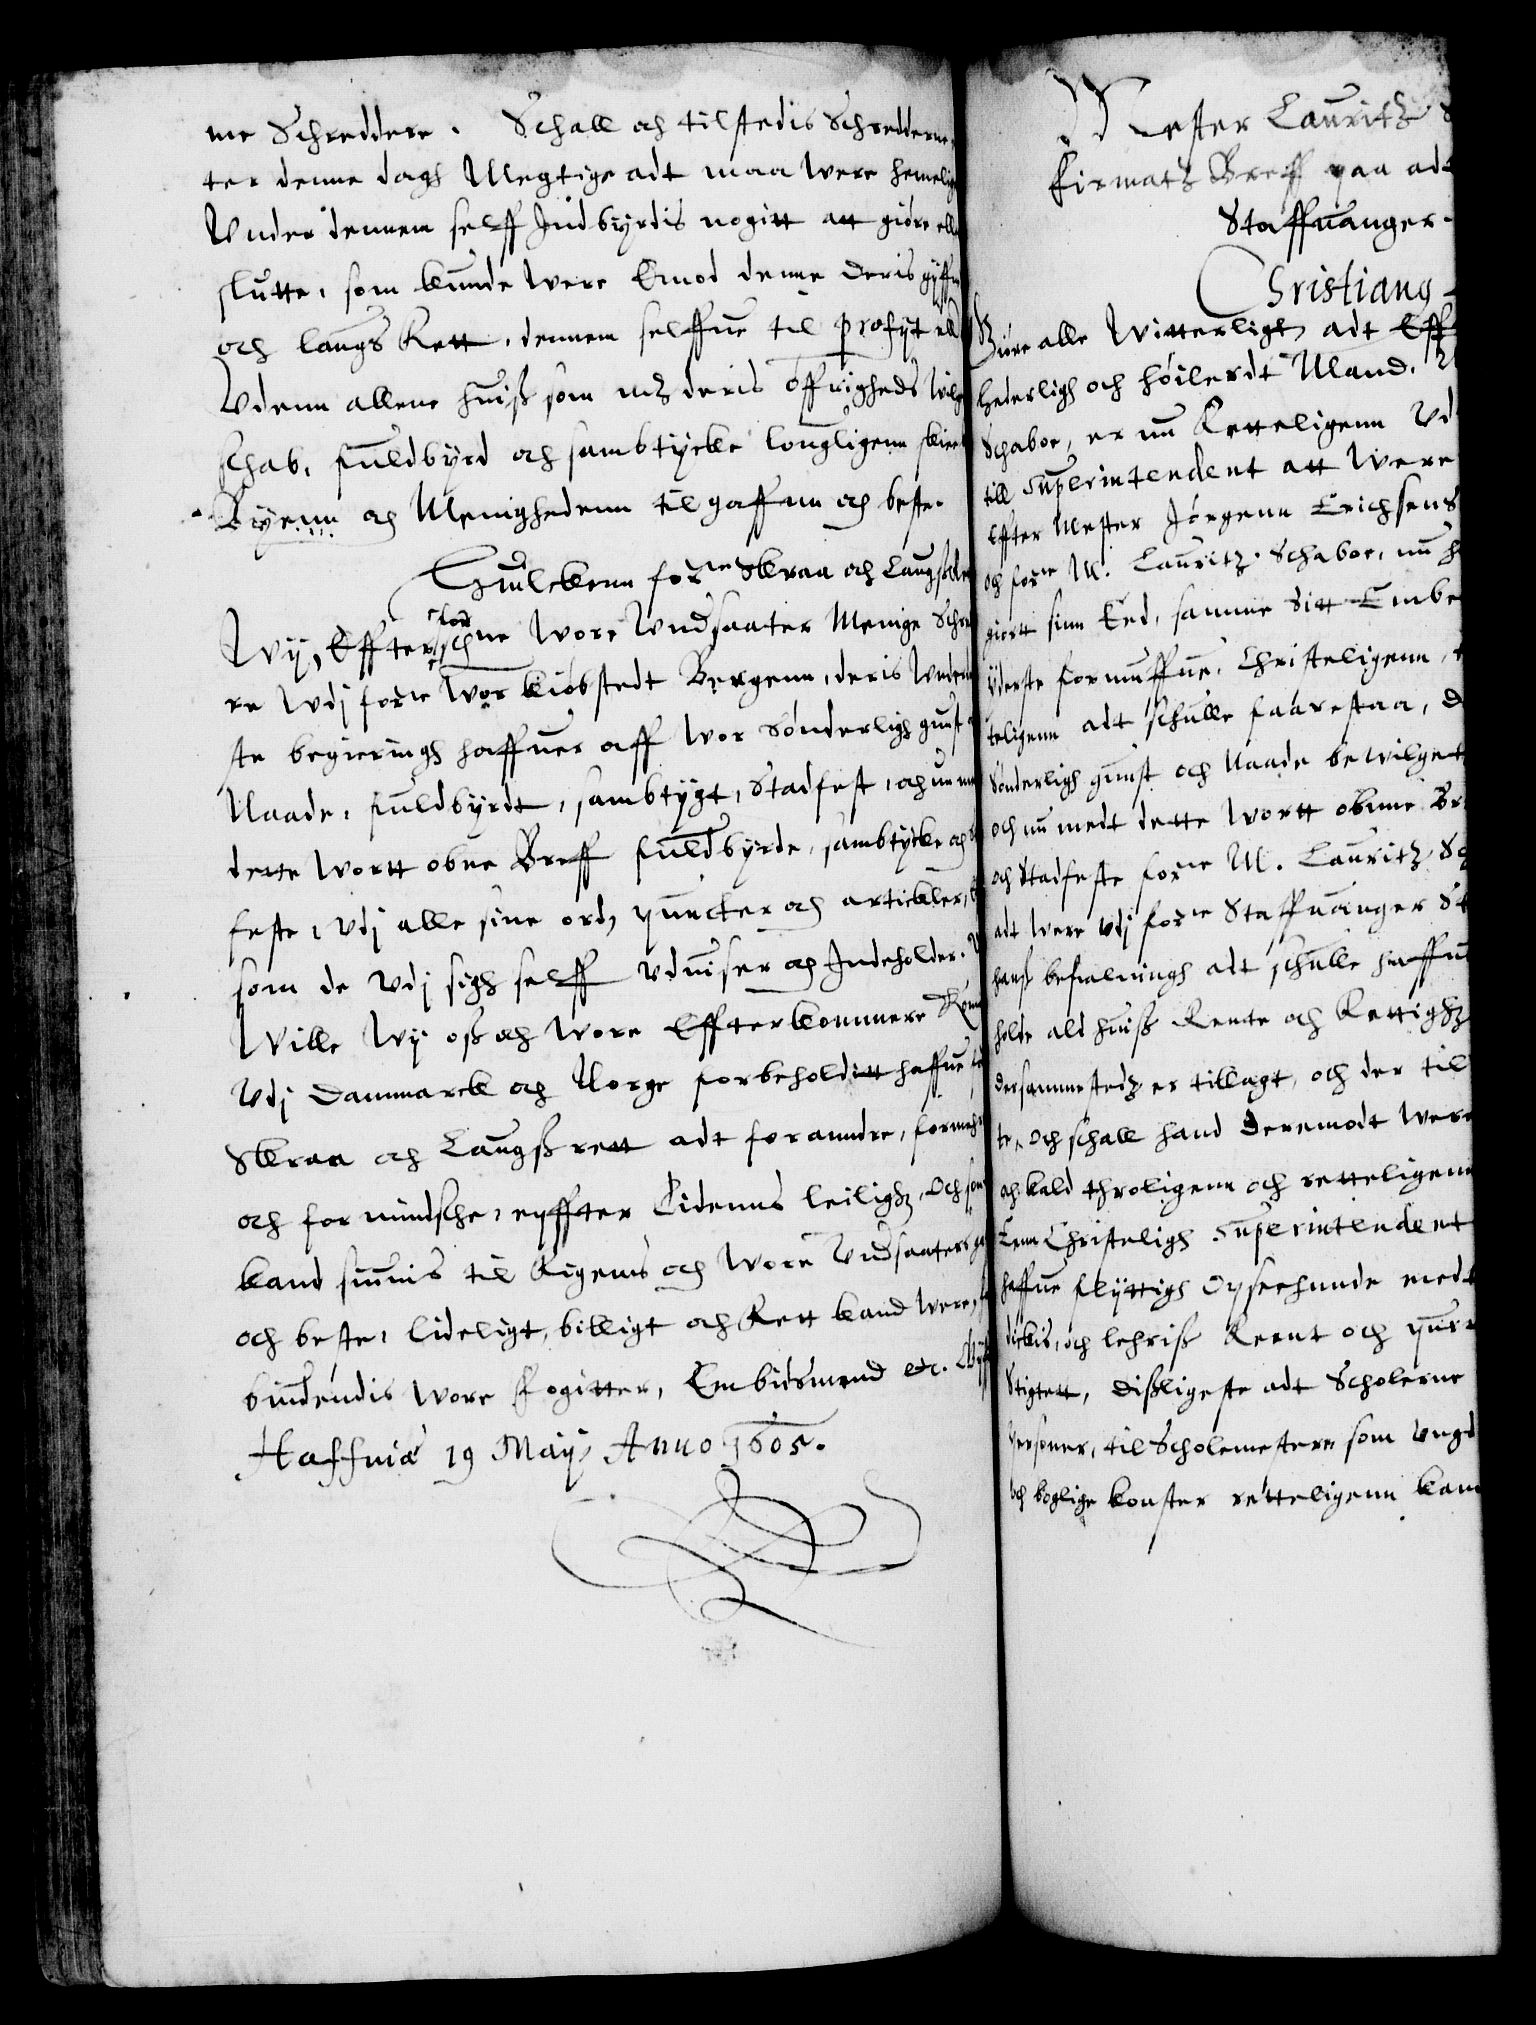 me Schreddere. Schall och tilstedis Schredderne
ter denne dagh Megtige adt maa were hemelig
Vnder dennem selff Jndbyrdis nogitt att giøre ell
slutte, som kunde were Emod denne deris gyffu
och laugs Rett, dennem selffue til profyt ell
Vdenn allene huiss som mz deris øffrigheds wil
schab, fuldbyrd och sambtycke lougligenn skier
Byenn och Menighedenn til gaffnn och beste.
Huilckenn forne Skraa och Laugss
Wy, Effter forschne Wore Vndsaater Menige Schre
re Vdj forne Wor kiøbstedt Bergenn, deris Vnder
ste begieringh haffuer aff Wor Sønderligh gunst
Naade, fuldbyrdt, sambtygt, Stadfest, och nu m
dette Wortt obne Breff fuldbyrde, sambtycke och
feste, Vdj alle sine ord, puncter och artickler,
som de Vdj sigh selff Vduiser och Jndeholder.
Wille Wy oss och Wore Effterkommere Kon
Vdj Dannmarck och Norge forbeholditt haffue
Skraa och Laugss rett adt foranndre, formehr
och formindsche, epffter Tidenns leilighz, Och som
kand sinnis til Rigens och Wore Vndsaaters
och beste, lideligt, billigt och Rett kand Were,
bindendis Wore Fogitter, Embidsmend etc.
Haffniæ 19 Maij Anno 1605.
Mester Lauritz S
firmatz Breff paa adt
Staffuanger.
Christianus
Giøre alle Witterligt, adt Eff
hederligh och høilerdt Mand,
Schaboe, er nu Retteligenn Vd
till Superintendent att Were
Effter Mester Jørgenn Erichsens
och forne M. Lauritz Schaboe, nu h
giortt sinn Eed, samme Sitt Embe
yderste formuffue, Christeligenn,
teligenn adt schulle faarestaa,
Sønderligh gunst och Naade bewilget
och nu medt dette Wortt obnne Br
och Stadfeste forne M. Lauritz Sch
adt Were Vdj forne Staffuanger St
hans befalningh adt schulle haffu
holde ald huiss Rente och Rettighz
dersammestedz er tillagt, och der til
te, Och schall hand deremodt Were
och kald throligenn och retteligenn
Enn Christeligh Superintendent
haffue flyttigh Opseehnnde med
dickis, och lehris Reent och purr
Stigtett, disligeste adt Scholerne
Personer, til Scholemestere som Vngd
och boglige konster retteligenn kan